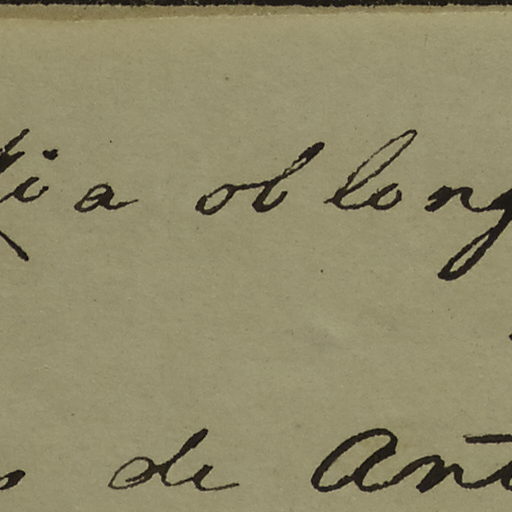 ia oblong
de Ant